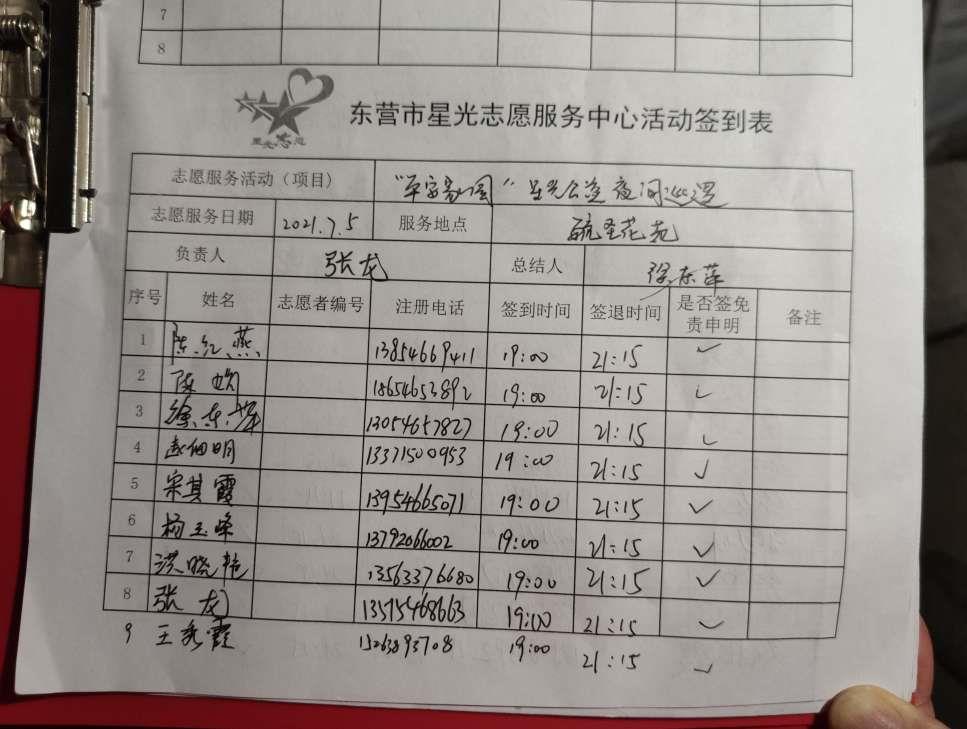 7
8
星光志愿
东营市星光志愿服务中心活动签到表
志愿服务活动（项目） “平安家园”星光公益夜间巡逻
志愿服务日期 2021.7.5 服务地点 毓圣花苑
负责人 张龙 总结人 徐东萍
序号 姓名 志愿者编号 注册电话 签到时间 签退时间 是否签免责申明 备注
1 陈红燕 13854669411 19:00 21:15 ✓
2 陈 18654653892 19:00 21:15 ✓
3 徐东萍 13054657827 19:00 21:15 ✓
4 明 13371500953 19:00 21:15 ✓
5 宋其霞 13954665071 19:00 21:15 ✓
6 杨玉峰 13792066002 19:00 21:15 ✓
7 洪晓艳 13563376680 19:00 21:15 ✓
8 张龙 13575468663 19:00 21:15 ✓
9 王秀霞 15263893708 19:00 21:15 ✓